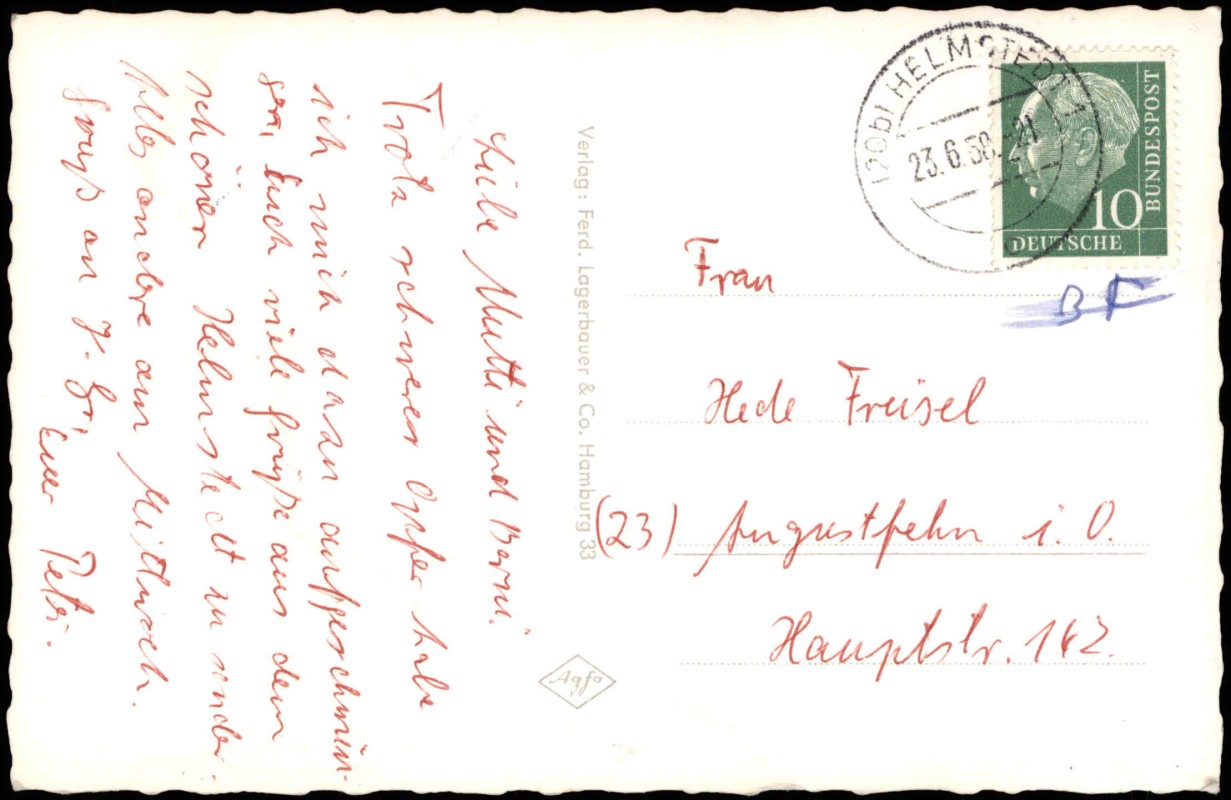 Liebe Mutti und Berni.
Trotz schwerer Opfer habe
ich mich dazu aufgeschwun-
gen, Euch viele Grüße aus dem
schönen Helmstedt zu senden.
Alles andere am Mittwoch.
Gruß an
Euer Peter.
Verlag: Ferd. Lagerbauer & Co. Hamburg 33
Agfa
(20b) HELMSTEDT
23.6.58.-21
10
DEUTSCHE
BUNDESPOST
Frau
Hede Freisel
(23) Augustfehn i. O.
Hauptstr. 142.